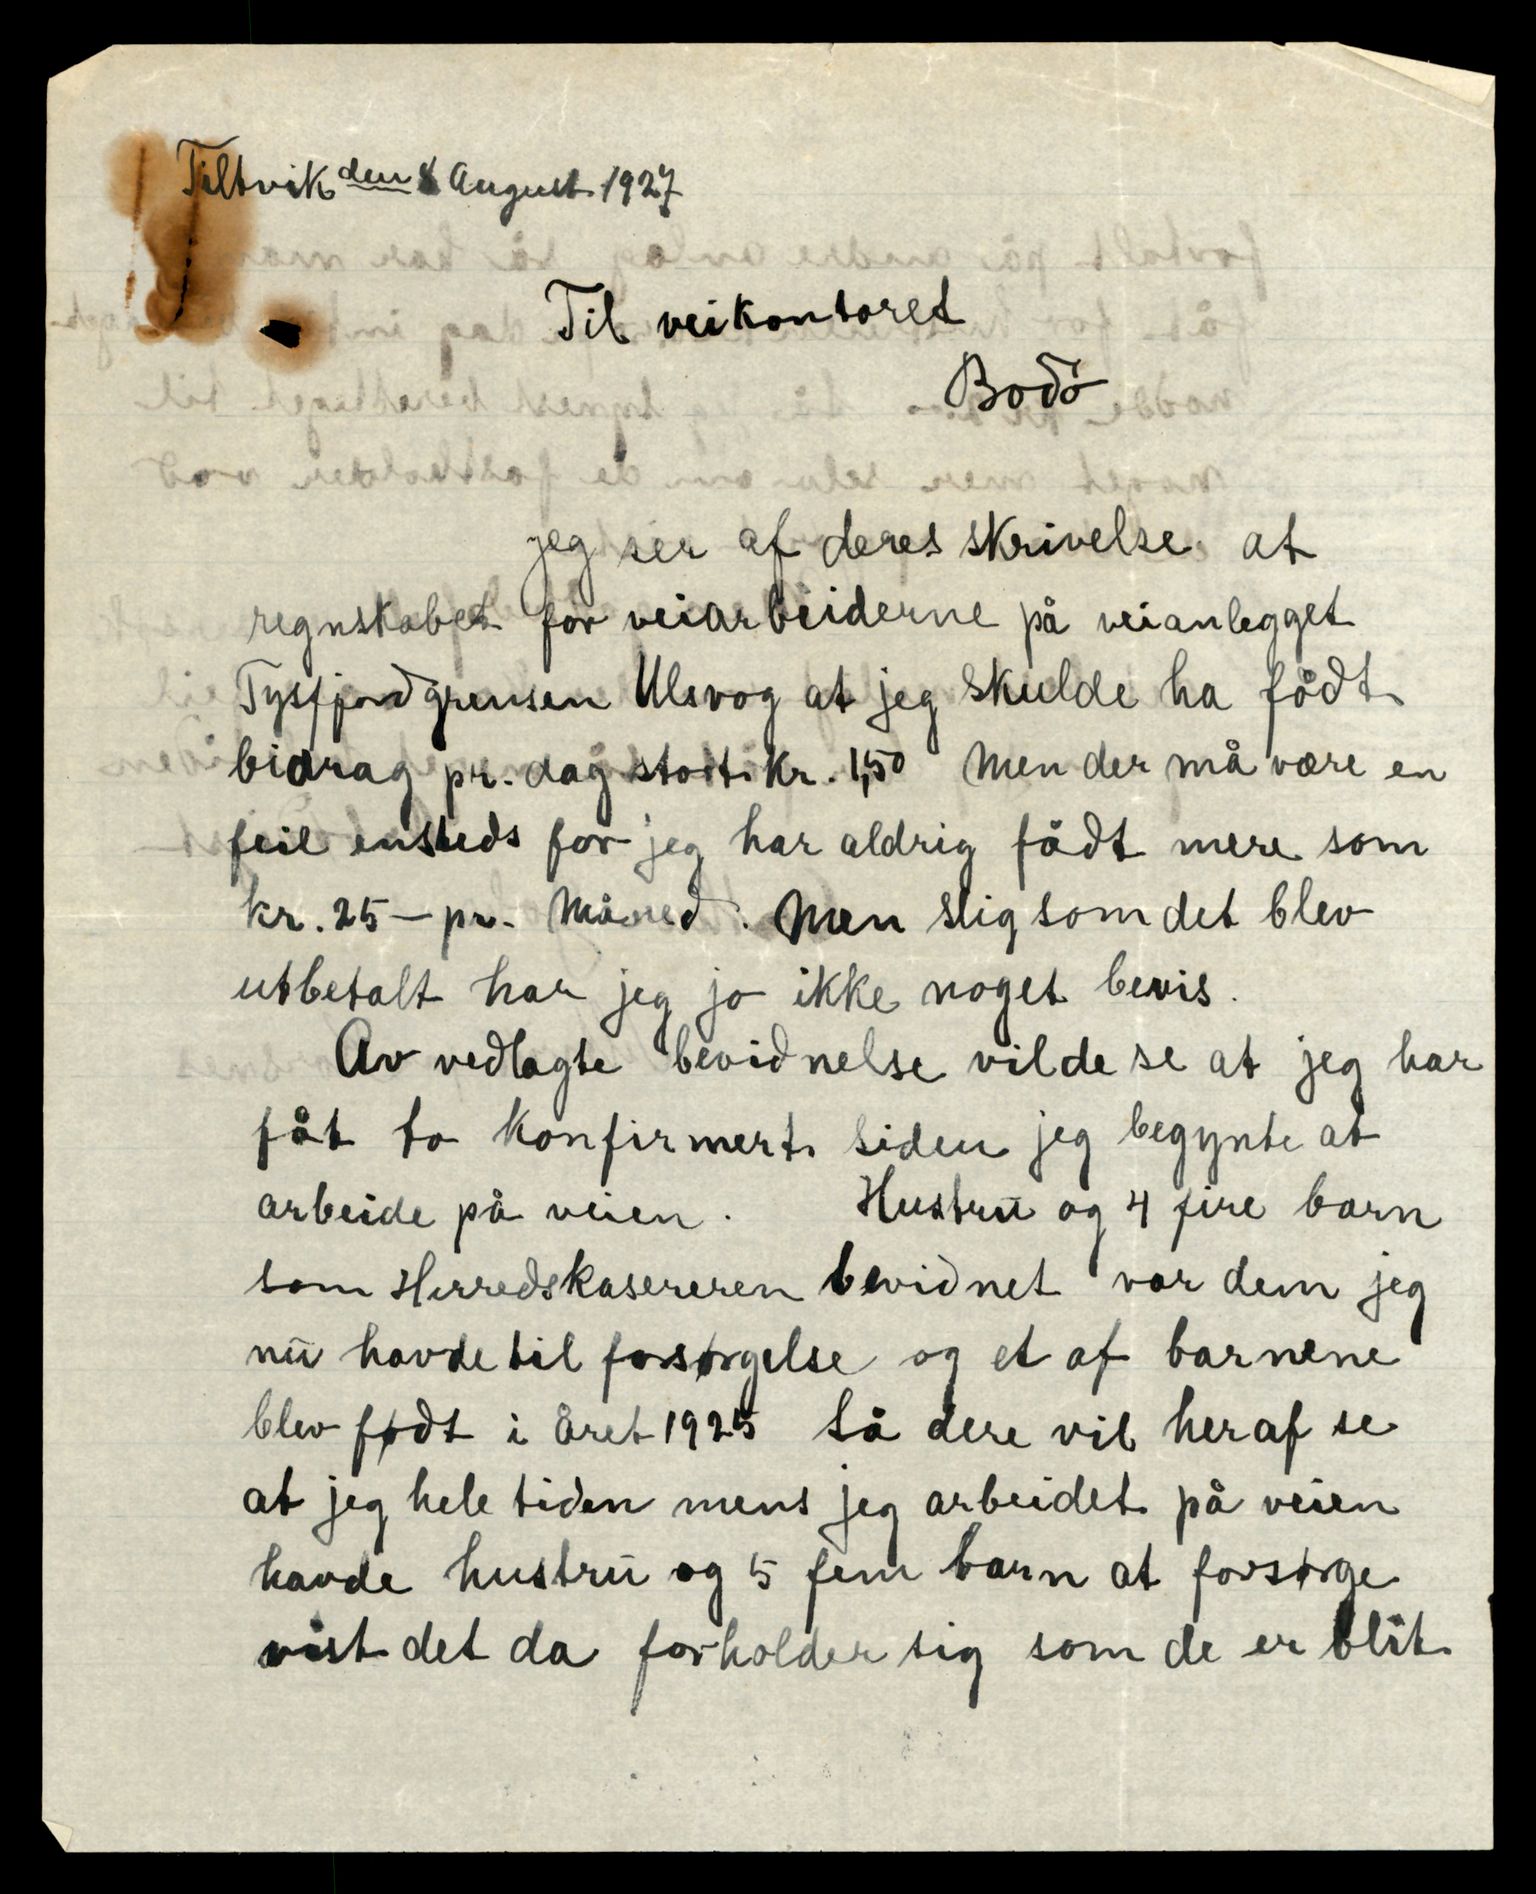 Tiltvik den 8 August 1927
Til veikontoret
Bodö
jeg ser af deres skrivelse at
regnskabet for veiarbeiderne på veianlegget
Tysfjordgrensen Ulsvog at jeg skulde ha fådt
bidrag pr. dag stort kr. 1,50 Men der må være en
feil ensteds for jeg har aldrig fådt mere som
kr. 25 – pr. Måned. Men slig som det blev
utbetalt har jeg jo ikke noget bevis.
Av vedlagte bevidnelse vil de se at jeg har
fåt to konfirmert siden jeg begynte at
arbeide på veien. Hustrū og 4 fire barn
som Herredskasereren bevidnet var dem jeg
nū havde til forsørgelse og et af barnene
blev født i året 1925 Så dere vil heraf se
at jeg hele tiden mens jeg arbeidet på veien
havde hustrū og 5 fem barn at forsørge
vist det da forholder sig som de er blit